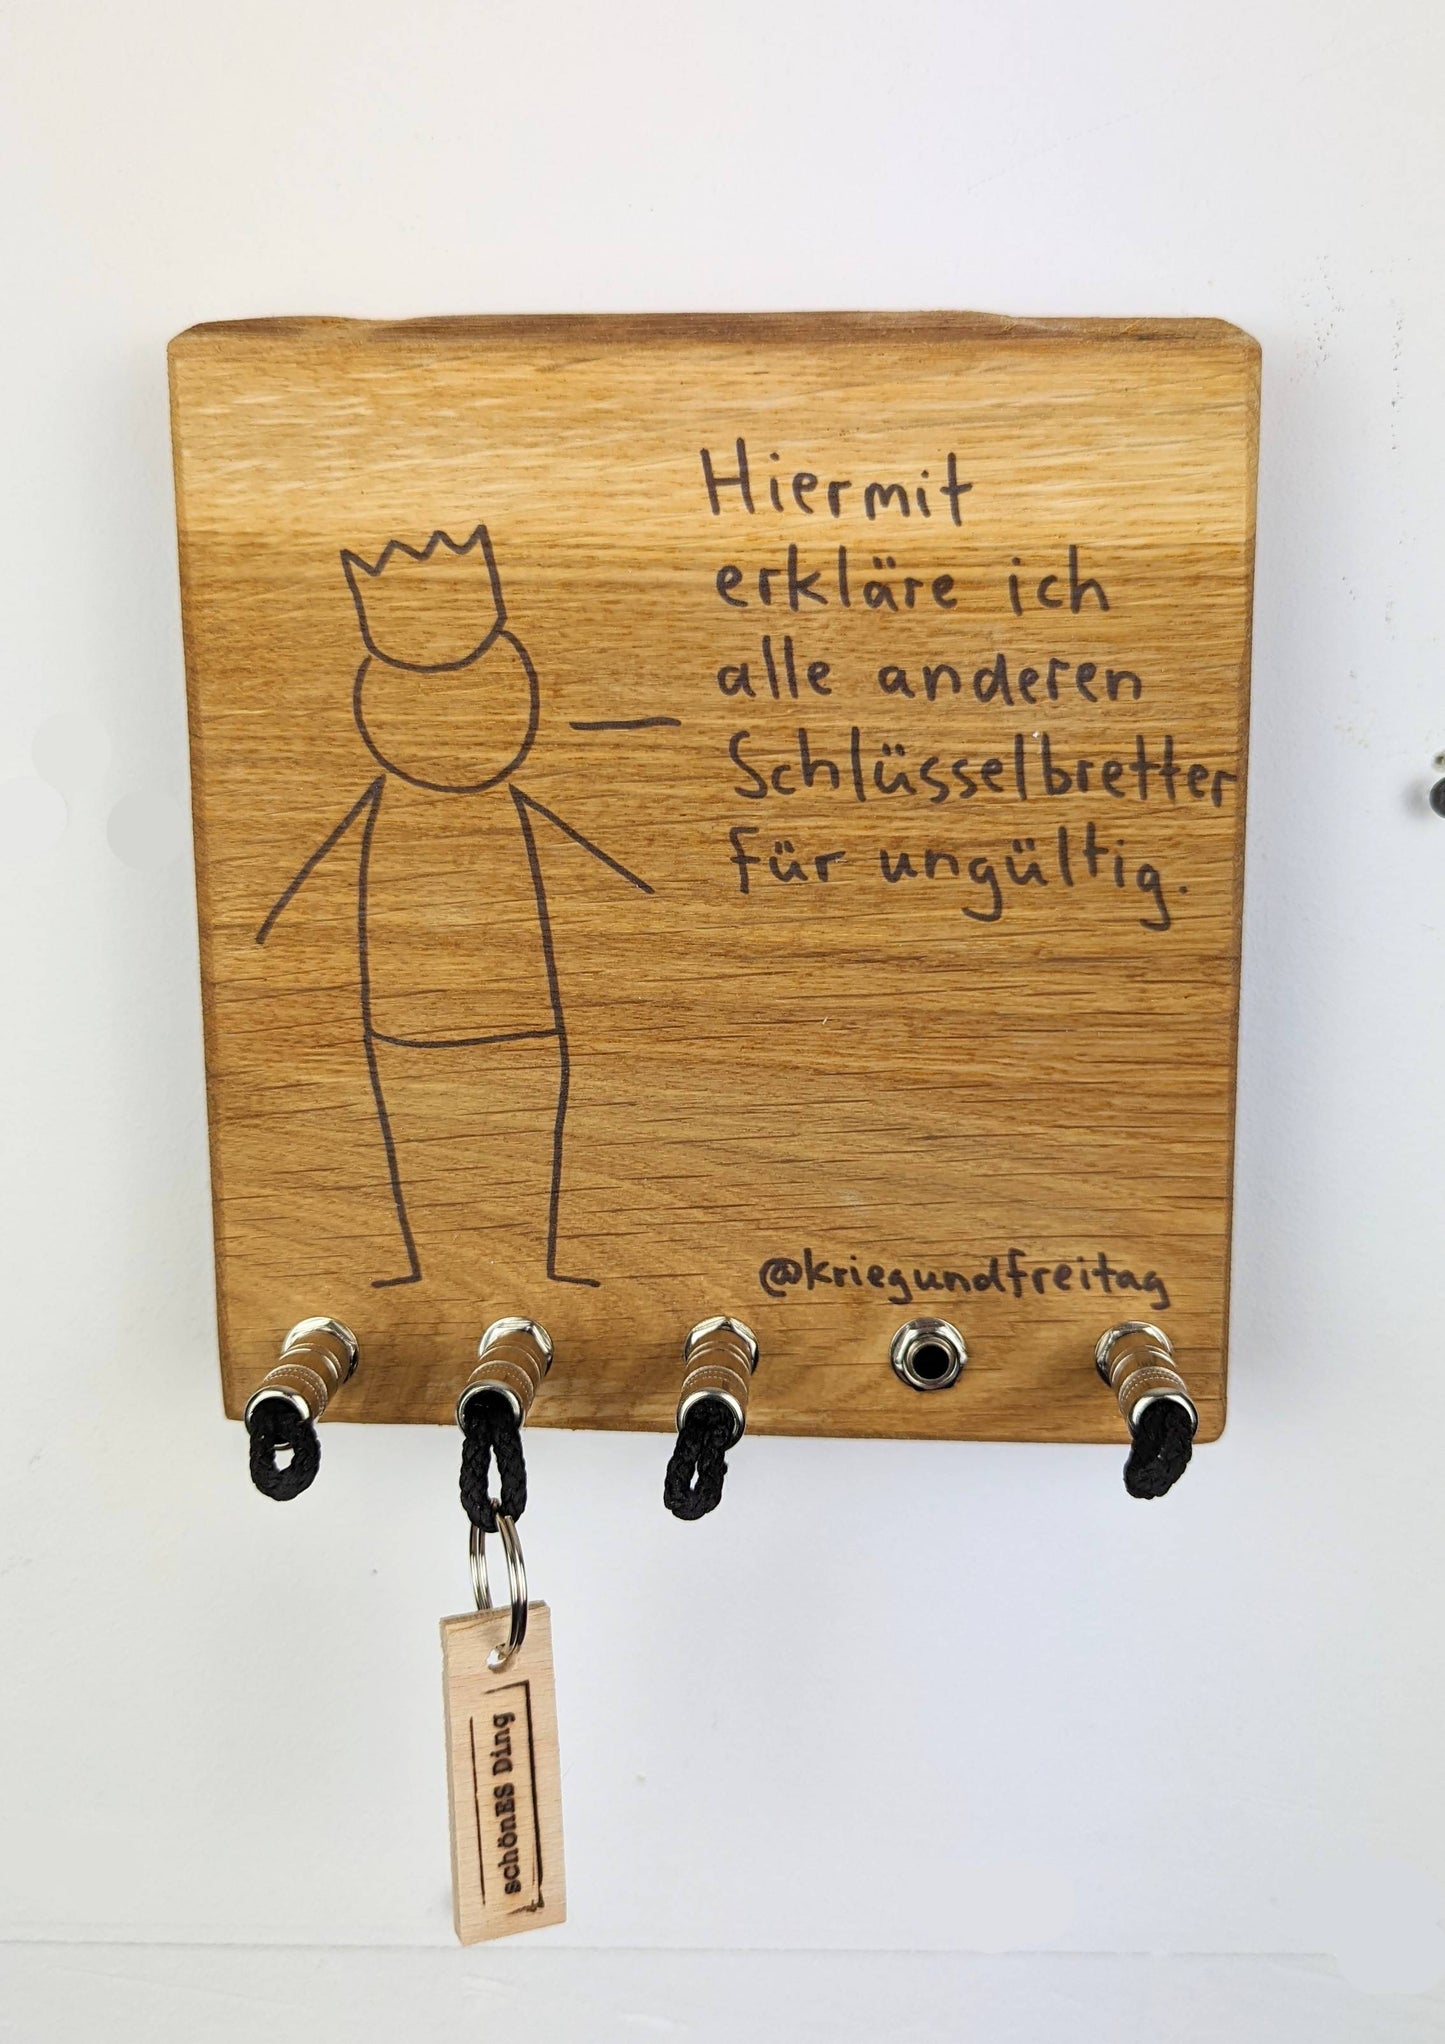 Hiermit
erkläre ich
alle anderen
Schlüsselbretter
für ungültig.
@kriegundfreitag
schönES Ding